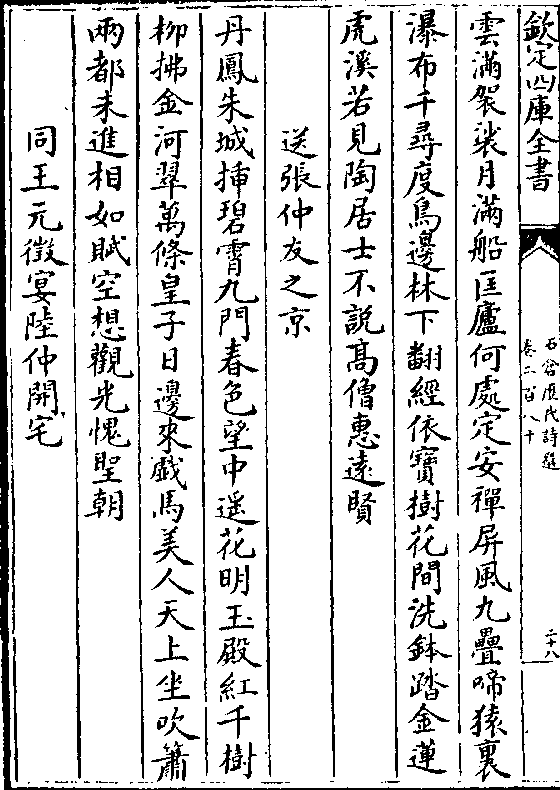 欽定四庫全書
石倉歷代詩選
卷二百八十
二十八
雲滿袈裟月滿船匡廬何處定安禪屏風九疊啼猿裏
瀑布千尋度鳥邊林下翻經依寶樹花間洗鉢踏金蓮
虎溪若見陶居士不説髙僧惠遠賢
送張仲友之京
丹鳳朱城插碧霄九門春色望中遥花明玉殿紅千樹
柳拂金河翠萬條皇子日邊來戲馬美人天上坐吹簫
兩都未進相如賦空想觀光愧聖朝
同王元徵宴陸仲開宅